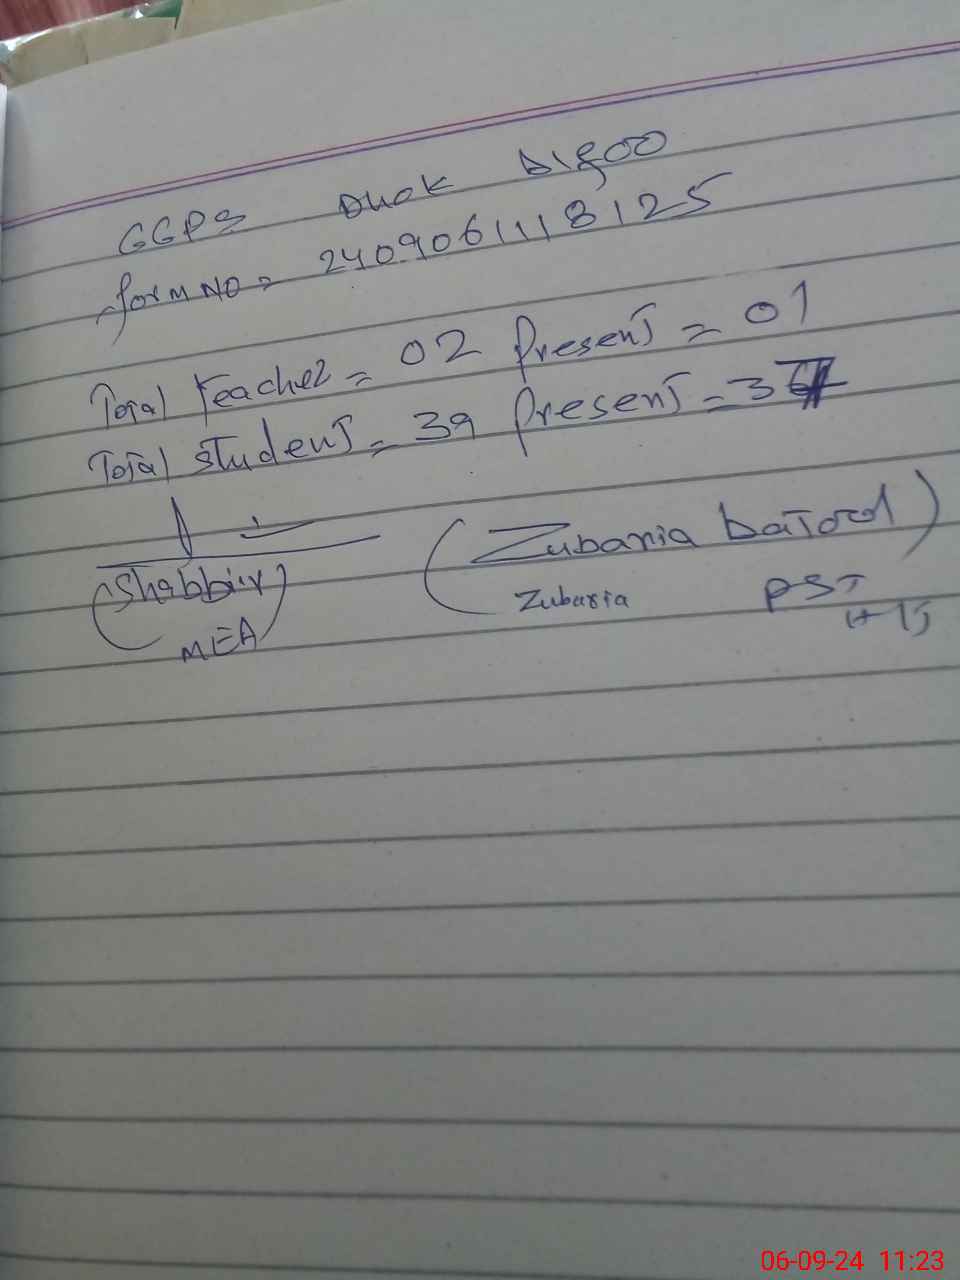 GGPS DHOK DIGOO
form NO = 2409061118125
Total teacher = 02 Present = 01
Total student = 39 Present = 37
(Shabbir) (Zubaria batool)
MEA Zubaria PST
06-09-24 11:23